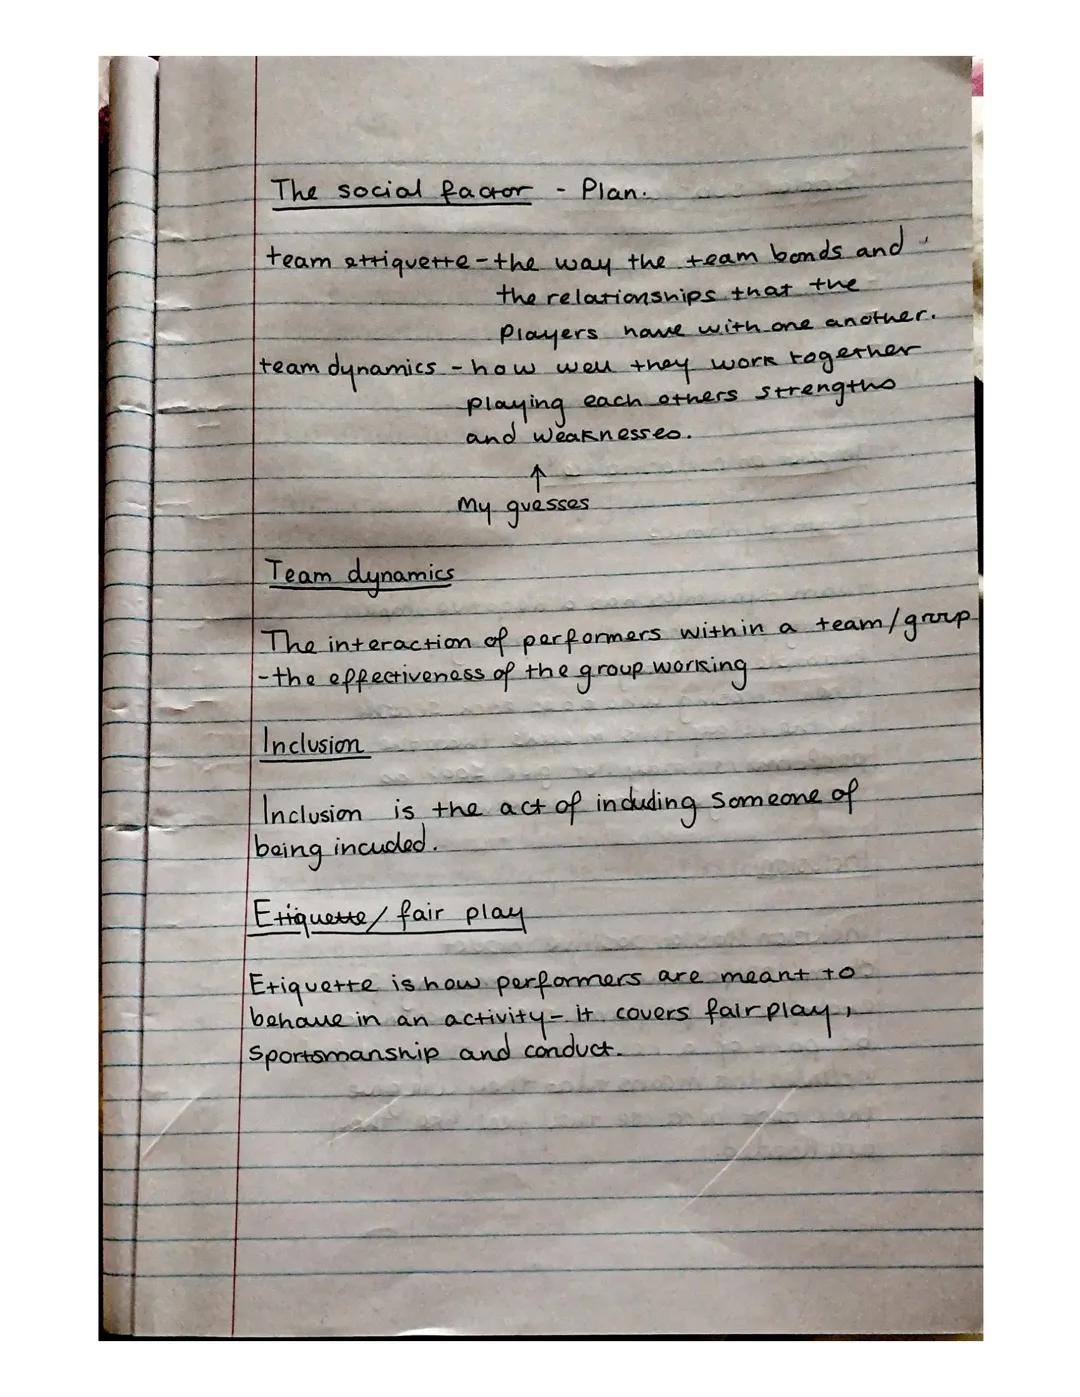 The social factor - Plan.
team ettiquette - the way the team bonds and
the relationships that the
players have with one another.
team dynamics - how well they work together
playing each others strengths
and weaknesses.
↑
My guesses
Team dynamics
The interaction of performers within a team/group
-the effectiveness of the group working
Inclusion
Inclusion is the act of including someone of
being incuded.
Etiquette/ fair play
Etiquette is how performers are meant to
behave in an activity - it covers fair play,
sportsmanship and conduct.